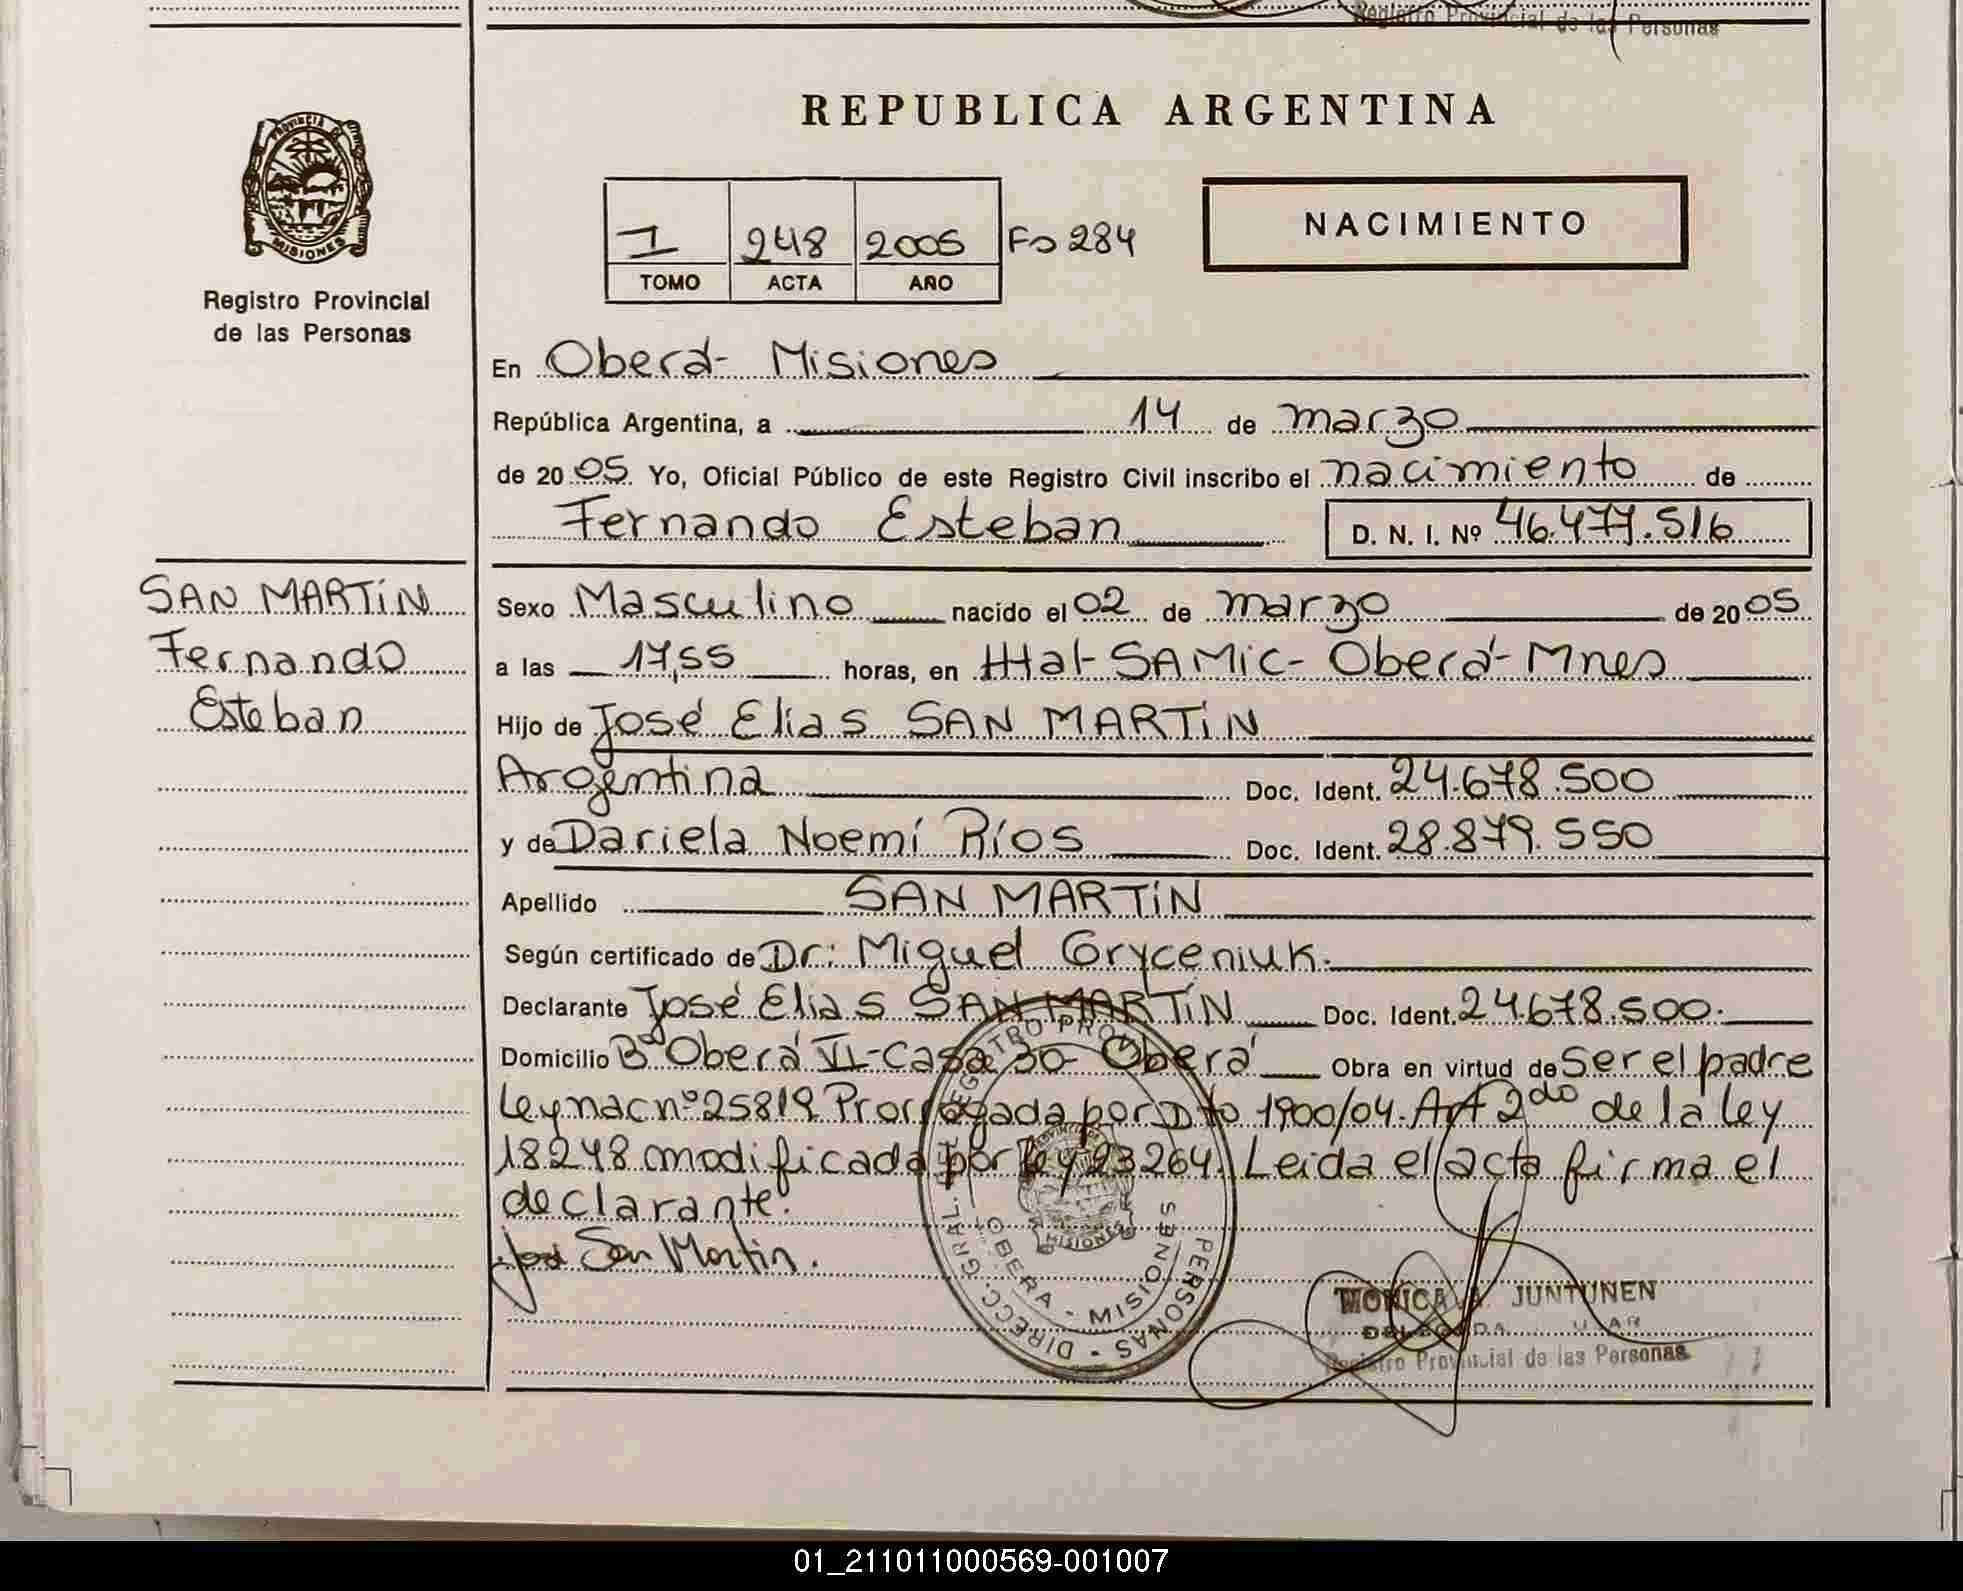 Registro Provincial de las Personas
PROVINCIA DE
MISIONES
Registro Provincial
de las Personas
REPUBLICA ARGENTINA
I 248 2005 Fo 284
TOMO ACTA AÑO
NACIMIENTO
En Oberá- Misiones
República Argentina, a 14 de marzo
de 20 05. Yo, Oficial Público de este Registro Civil inscribo el nacimiento de
Fernando Esteban D. N. I. Nº 46.477.516
SAN MARTíN
Fernando
Esteban
Sexo Masculino nacido el 02 de marzo de 20 05
a las 17,55 horas, en Htal-SAMIC- Oberá-Mnes
Hijo de José Elias SAN MARTíN
Argentina Doc. Ident. 24.678.500
y de Dariela Noemí Ríos Doc. Ident. 28.879.550
Apellido SAN MARTíN
Según certificado de Dr: Miguel Gryceniuk.
Declarante José Elias SAN MARTíN Doc. Ident. 24.678.500.
Domicilio Bº Oberá VI-Casa 30- Oberá Obra en virtud de Ser el padre
Ley nac nº 25819 Prorrogada por Dto 1900/04. Art 2do de la ley
18248 modificada por ley 23264. Leida el acta firma el
declarante.
José San Martin.
REGISTRO PROV. PERSONAS - DIRECC. GRAL.
OBERA - MISIONES
MISIONES
MONICA A. JUNTUNEN
Registro Provincial de las Personas
01_211011000569-001007